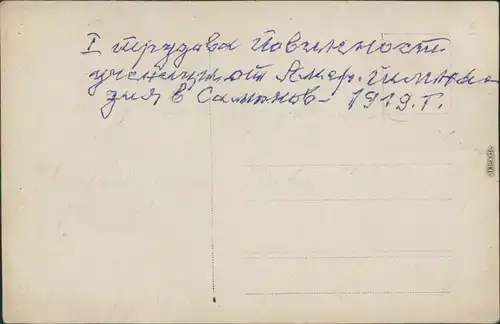 I трудова повинност
ученици от Амер. гимна-
зия в Самоков – 1919. г.